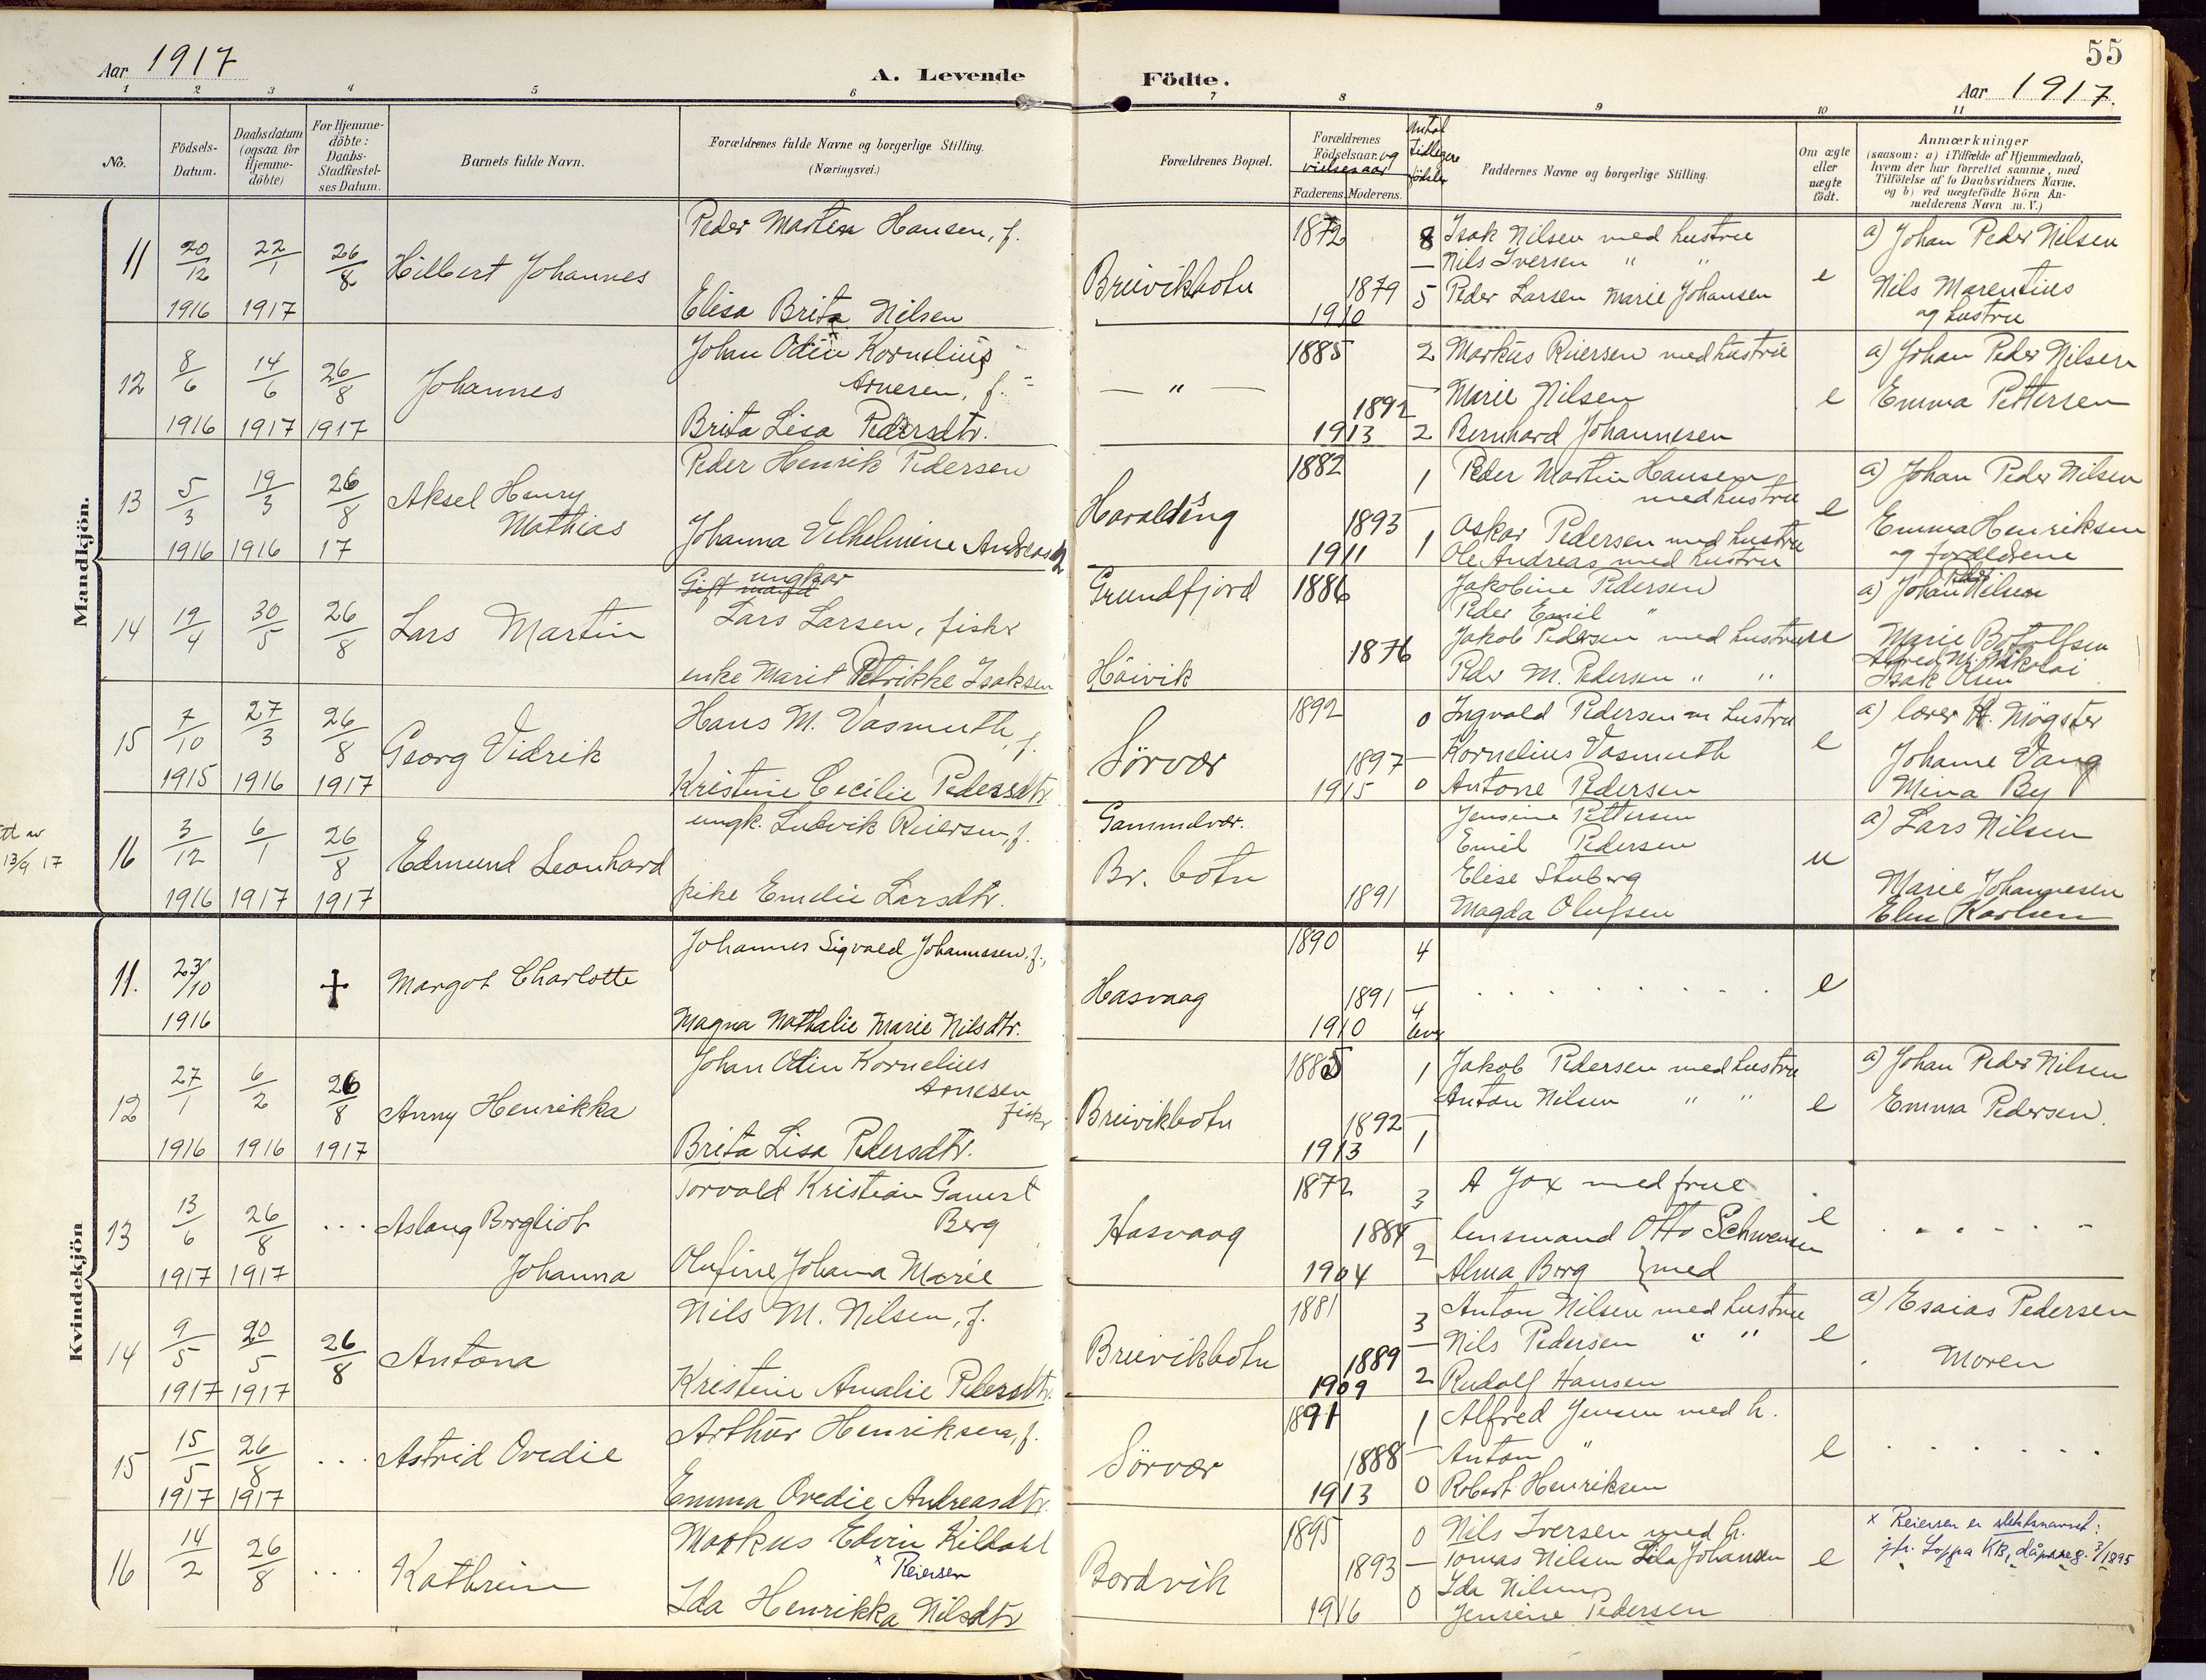 55
Aar 1917
A. Levende Födte.
Aar 1917.
1 2 3 4 5 6 7 8 9 10 11
No.
Födsels-Datum.
Daabsdatum (ogsaa for Hjemme-döbte)
For Hjemme-döbte: Daabs-Stadfæstel-ses Datum.
Barnets fulde Navn.
Forældrenes fulde Navne og borgerlige Stilling.
(Næringsvei.)
Forældrenes Bopæl.
Forældrenes Födselsaar og vielsesaar
Faderens. Moderens.
Antal tidligere födsler
Faddernes Navne og borgerlige Stilling.
Om ægte eller uægte födt.
Anmærkninger
(saasom: a) i Tilfælde af Hjemmedaab, hvem der har forrettet samme, med Tilföielse af to Daabsvidners Navne, og b) ved uægtefödte Börn Anmelderens Navn m. V.)
Mandkjön.
11 20/12 1916 22/1 1917 26/8 Hilbert Johannes
Peder Marten Hansen, f.
Elisa Brita Nilsen
Breivikbotn 1872 1879 1910 8 — 5
Isak Nilsen med hustru
Nils Iversen " "
Peder Larsen Marie Johansen
e
a) Johan Peder Nilsen
Nils Marentius
og hustru
12 8/6 1916 14/6 1917 26/8 1917 Johannes
Johan Odin Kornelius
Arnesen, f.
Brita Lisa Pedersdtr.
— " — 1885 1892 1913 2 — 2
Markus Reiersen med hustru
Marie Nilsen
Bernhard Johannesen
e
a) Johan Peder Nilsen
Emma Pettersen
13 5/3 1916 19/3 1916 26/8 17 Aksel Henry
Mathias
Peder Henrik Pedersen
Johanna Vilhelmine Andreasen
Haraldeng 1882 1893 1911 1 — 1
Peder Martin Hansen
med hustru
Oskar Pedersen med hustru
Ole Andreas med hustru
e
a) Johan Peder Nilsen
Emma Henriksen
og forældrene
14 19/4 30/5 26/8 Lars Martin
ungkar
Lars Larsen, fisker
enke Marit Petrikke Isaksen
Grundfjord
Håivik
1886 1876
Jakobine Pedersen
Peder Emil "
Jakob Pedersen med hustru
Peder M. Pedersen " "
u
a) Johan Peder Nilsen
Marie Botolfsen
Isak Olsen
15 7/10 1915 27/3 1916 26/8 1917 Georg Vidrik
Hans M. Vasmuth, f.
Kristine Cecilie Pedersdtr
Sörvær 1892 1897 1915 0 — 0
Ingvald Pedersen m hustru
Kornelius Vasmuth
Antone Pedersen
e
a) lærer H. Mögster
Johanne Vang
Mina By
13/9 17
16 3/12 1916 6/1 1917 26/8 1917 Edmund Leonhard
ungk. Ludvik Reiersen, f.
pike Emelie Larsdtr.
Gammelvær.
Br. botn
1891
Jensine Pettersen
Emil Pedersen
Elise Stuberg
Magda Olufsen
u
a) Lars Nilsen
Marie Johannesen
Elen Karlsen
Kvindekjön
11. 23/10 1916 + Margot Charlotte
Johannes Sigvald Johannesen, f.,
Magna Nathalie Marie Nilsdtr.
Hasvaag 1890 1891 1910 4 — 4 lev
. . . . . . . . . e
12 27/1 1916 6/2 1916 26/8 1917 Anny Henrikka
Johan Odin Kornelius
Arnesen
fisker
Brita Lisa Pedersdtr.
Breivikbotn 1885 1892 1913 1 — 1
Jakob Pedersen med hustru
Anton Nilsen " "
e
a) Johan Peder Nilsen
Emma Pedersen.
13 13/6 1917 26/8 1917 ... Aslaug Bergliot
Johanna
Torvald Kristian Gamst
Berg
Olufine Johana Marie
Hasvaag 1872 1884 1904 3 — 2
A Jox med frue
lensmand Otto Schwensen
Alma Berg } med
e
. . . . . -
14 9/5 1917 20/5 1917 26/8 Antona
Nils M. Nilsen, f.
Kristine Amalie Pedersdtr.
Breivikbotn 1881 1889 1909 3 — 2
Anton Nilsen med hustru
Nils Pedersen " "
Rudolf Hansen
e
a) Esaias Pedersen
Moren
15 15/5 1917 26/8 1917 ... Astrid Ovedie
Arthur Henriksen, f.
Emma Ovedie Andreasdtr.
Sörvær 1891 1888 1913 1 — 0
Alfred Jensen med h.
Anton "
Robert Henriksen
e
. . . . . .
16 14/2 26/8 ... Kathrine
Markus Edvin Kildahl
x Reiersen
Ida Henrikka Nilsdtr
Bordvik 1895 1893 1916 0 — 0
Nils Iversen med h.
Tomas Nilsen Lila Johansen
Ida Nilsen
Jensine Pedersen
e
x Reiersen er slektsnavnet:
jfr. Loppa KB, dåpsreg. 3/1895